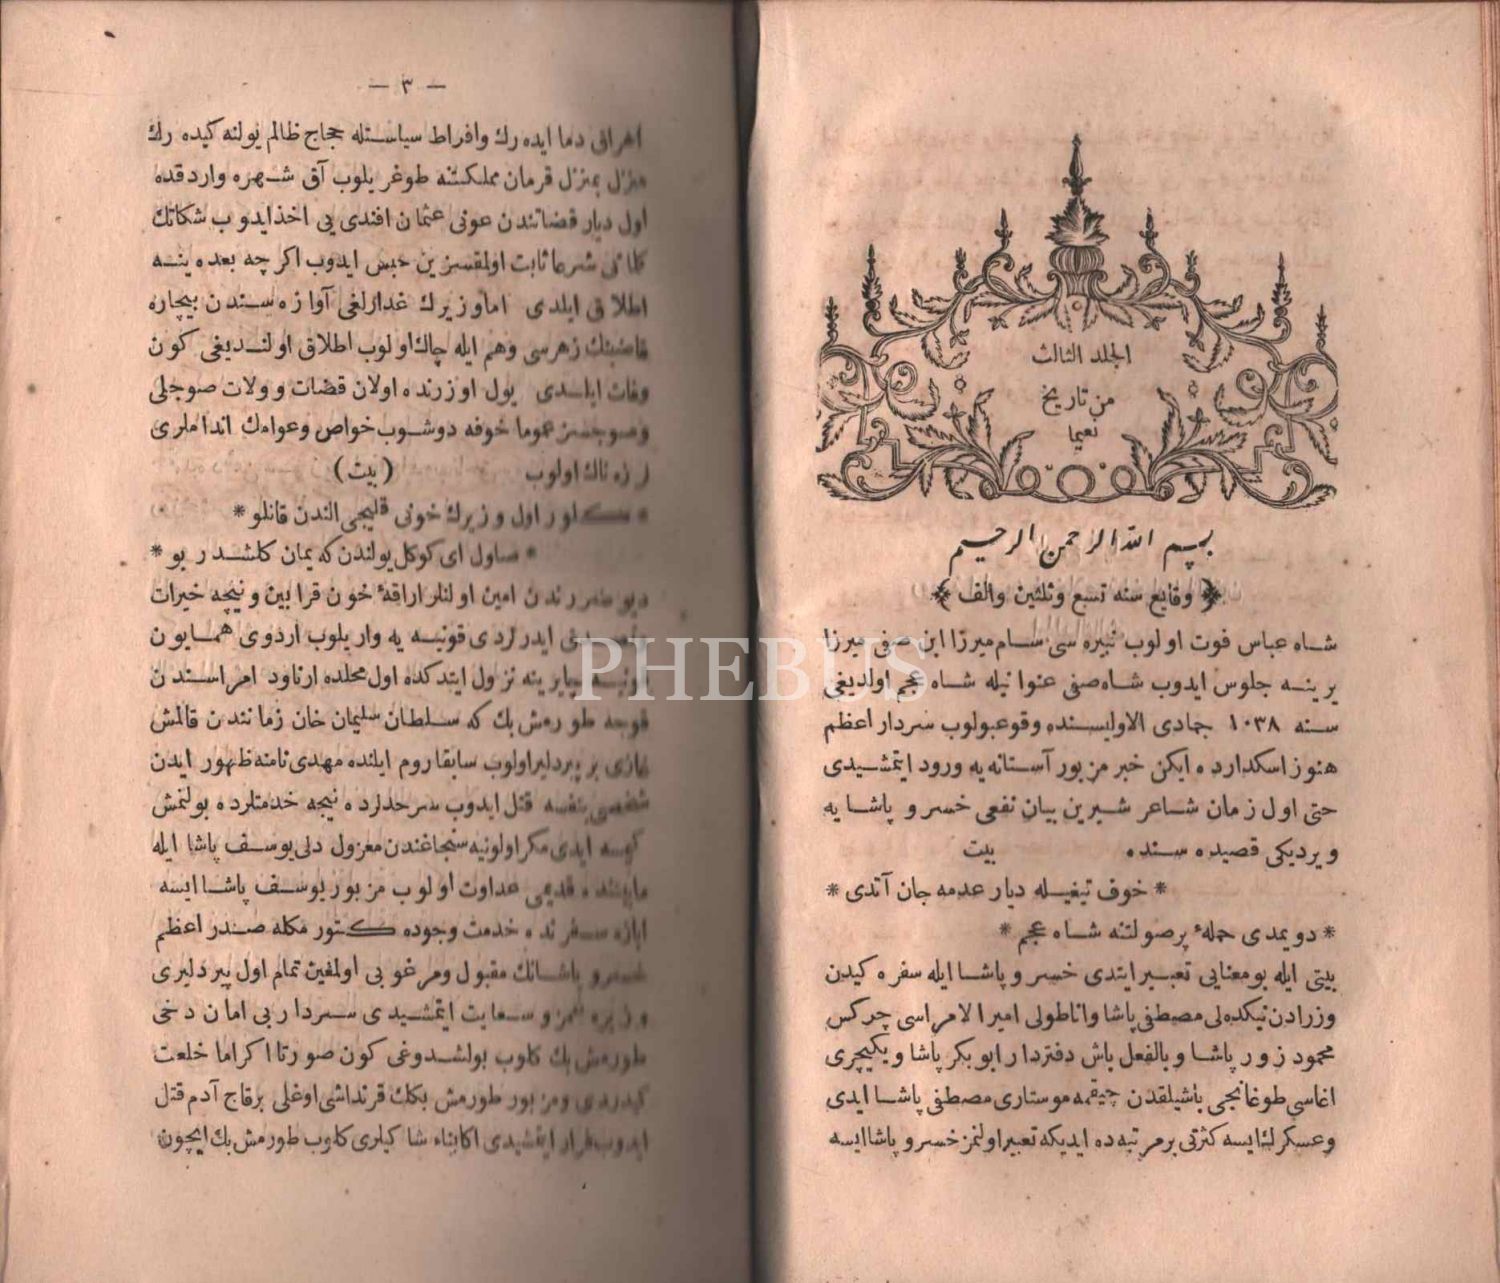 الجلد الثالث
من تاريخ
نعيما
بسم الله الرحمن الرحيم
﴿ وقايع سنه تسع وثلثين والف ﴾
شاه عباس فوت اولوب نبيره سى سام ميرزا ابن صفى ميرزا
يرينه جلوس ايدوب شاه صفى عنوانيله شاه عجم اولديغى
سنه ١٠٣٨ جمادى الاوليسنده وقوعبولوب سردار اعظم
هنوز اسكدارده ايكن خبر مزبور آستانه يه ورود ايتمشيدى
حتى اول زمان شاعر شيرين بيان نفعى خسرو پاشا يه
ويرديكى قصيده سنده بيت
* خوف تيغيله ديار عدمه جان آتدى *
* دويمدى حملهٔ پرصولتنه شاه عجم *
بيتى ايله بومعنايى تعبير ايتدى خسرو پاشا ايله سفره كيدن
وزرادن نيكده لى مصطفى پاشا واناطولى امير الامراسى چركس
محمود زور پاشا وبالفعل باش دفتردار ابو بكر پاشا ويكيچرى
اغاسى طوغانجى باشيلقدن چيقمه موستارى مصطفى پاشا ايدى
وعسكر لئايسه كثرتى برمرتبه ده ايديكه تعبير اولنمز خسرو پاشا ايسه
— ٣ —
اهراق دما ايده رك وافراط سياستله حجاج ظالم يولنه كيده رك
منزل بمنزل قرمان مملكتنه طوغريلوب آق شهره واردقده
اول ديار قضاتندن عونى عثمان افندى يى اخذايدوب شكاتك
شرعا ثابت اولمقسزين حبس ايدوب اكرچه بعده ينه
اطلاق ايلدى اما وزيرك غدارلغى آوازه سندن بيچاره
قاضينك زهرسى وهم ايله چاك اولوب اطلاق اولنديغى كون
وفات ايلدى يول اوزرنده اولان قضات وولات صوچلى
وصوچسز عموما خوفه دوشوب خواص وعوامك انداملرى
لرزه ناك اولوب (بيت)
اول وزيرك خونى قليجى الندن قانلو *
* صاول اى كوكل يولندن كه يمان كلشدر بو *
ديو ضررندن امين اولنلر اراقهٔ خون قرابين ونيچه خيرات
ايدرلردى قونيه يه واريلوب اردوى همايون
قونيه نزول ايتدكده اول محلده ارناود امراسندن
قوجه طورمش بك كه سلطان سليمان خان زمانندن قالمش
غازى بر پيردلير اولوب سابقا روم ايلنده مهدى نامنه ظهور ايدن
شخصى بنفسه قتل ايدوب سرحدلرده نيچه خدمتلرده بولنمش
كيمسه ايدى مكر اولونيه سنجاغندن معزول دلى يوسف پاشا ايله
ماپيننده قديمى عداوت اولوب مزبور يوسف پاشا ايسه
ابازه سفرنده خدمت وجوده كتورمكله صدر اعظم
خسرو پاشانك مقبول ومرغوبى اولمغين تمام اول پير دليرى
وزيره غمز وسعايت ايتمشيدى سردار بى امان دخى
طورمش بك كلوب بولشدوغى كون صورتا اكراما خلعت
كيدردى ومزبور طورمش بكك قرنداشى اوغلى برقاچ آدم قتل
ايدوب فرار ايتمشيدى كلوب طورمش بك ايچون
PHEBUS